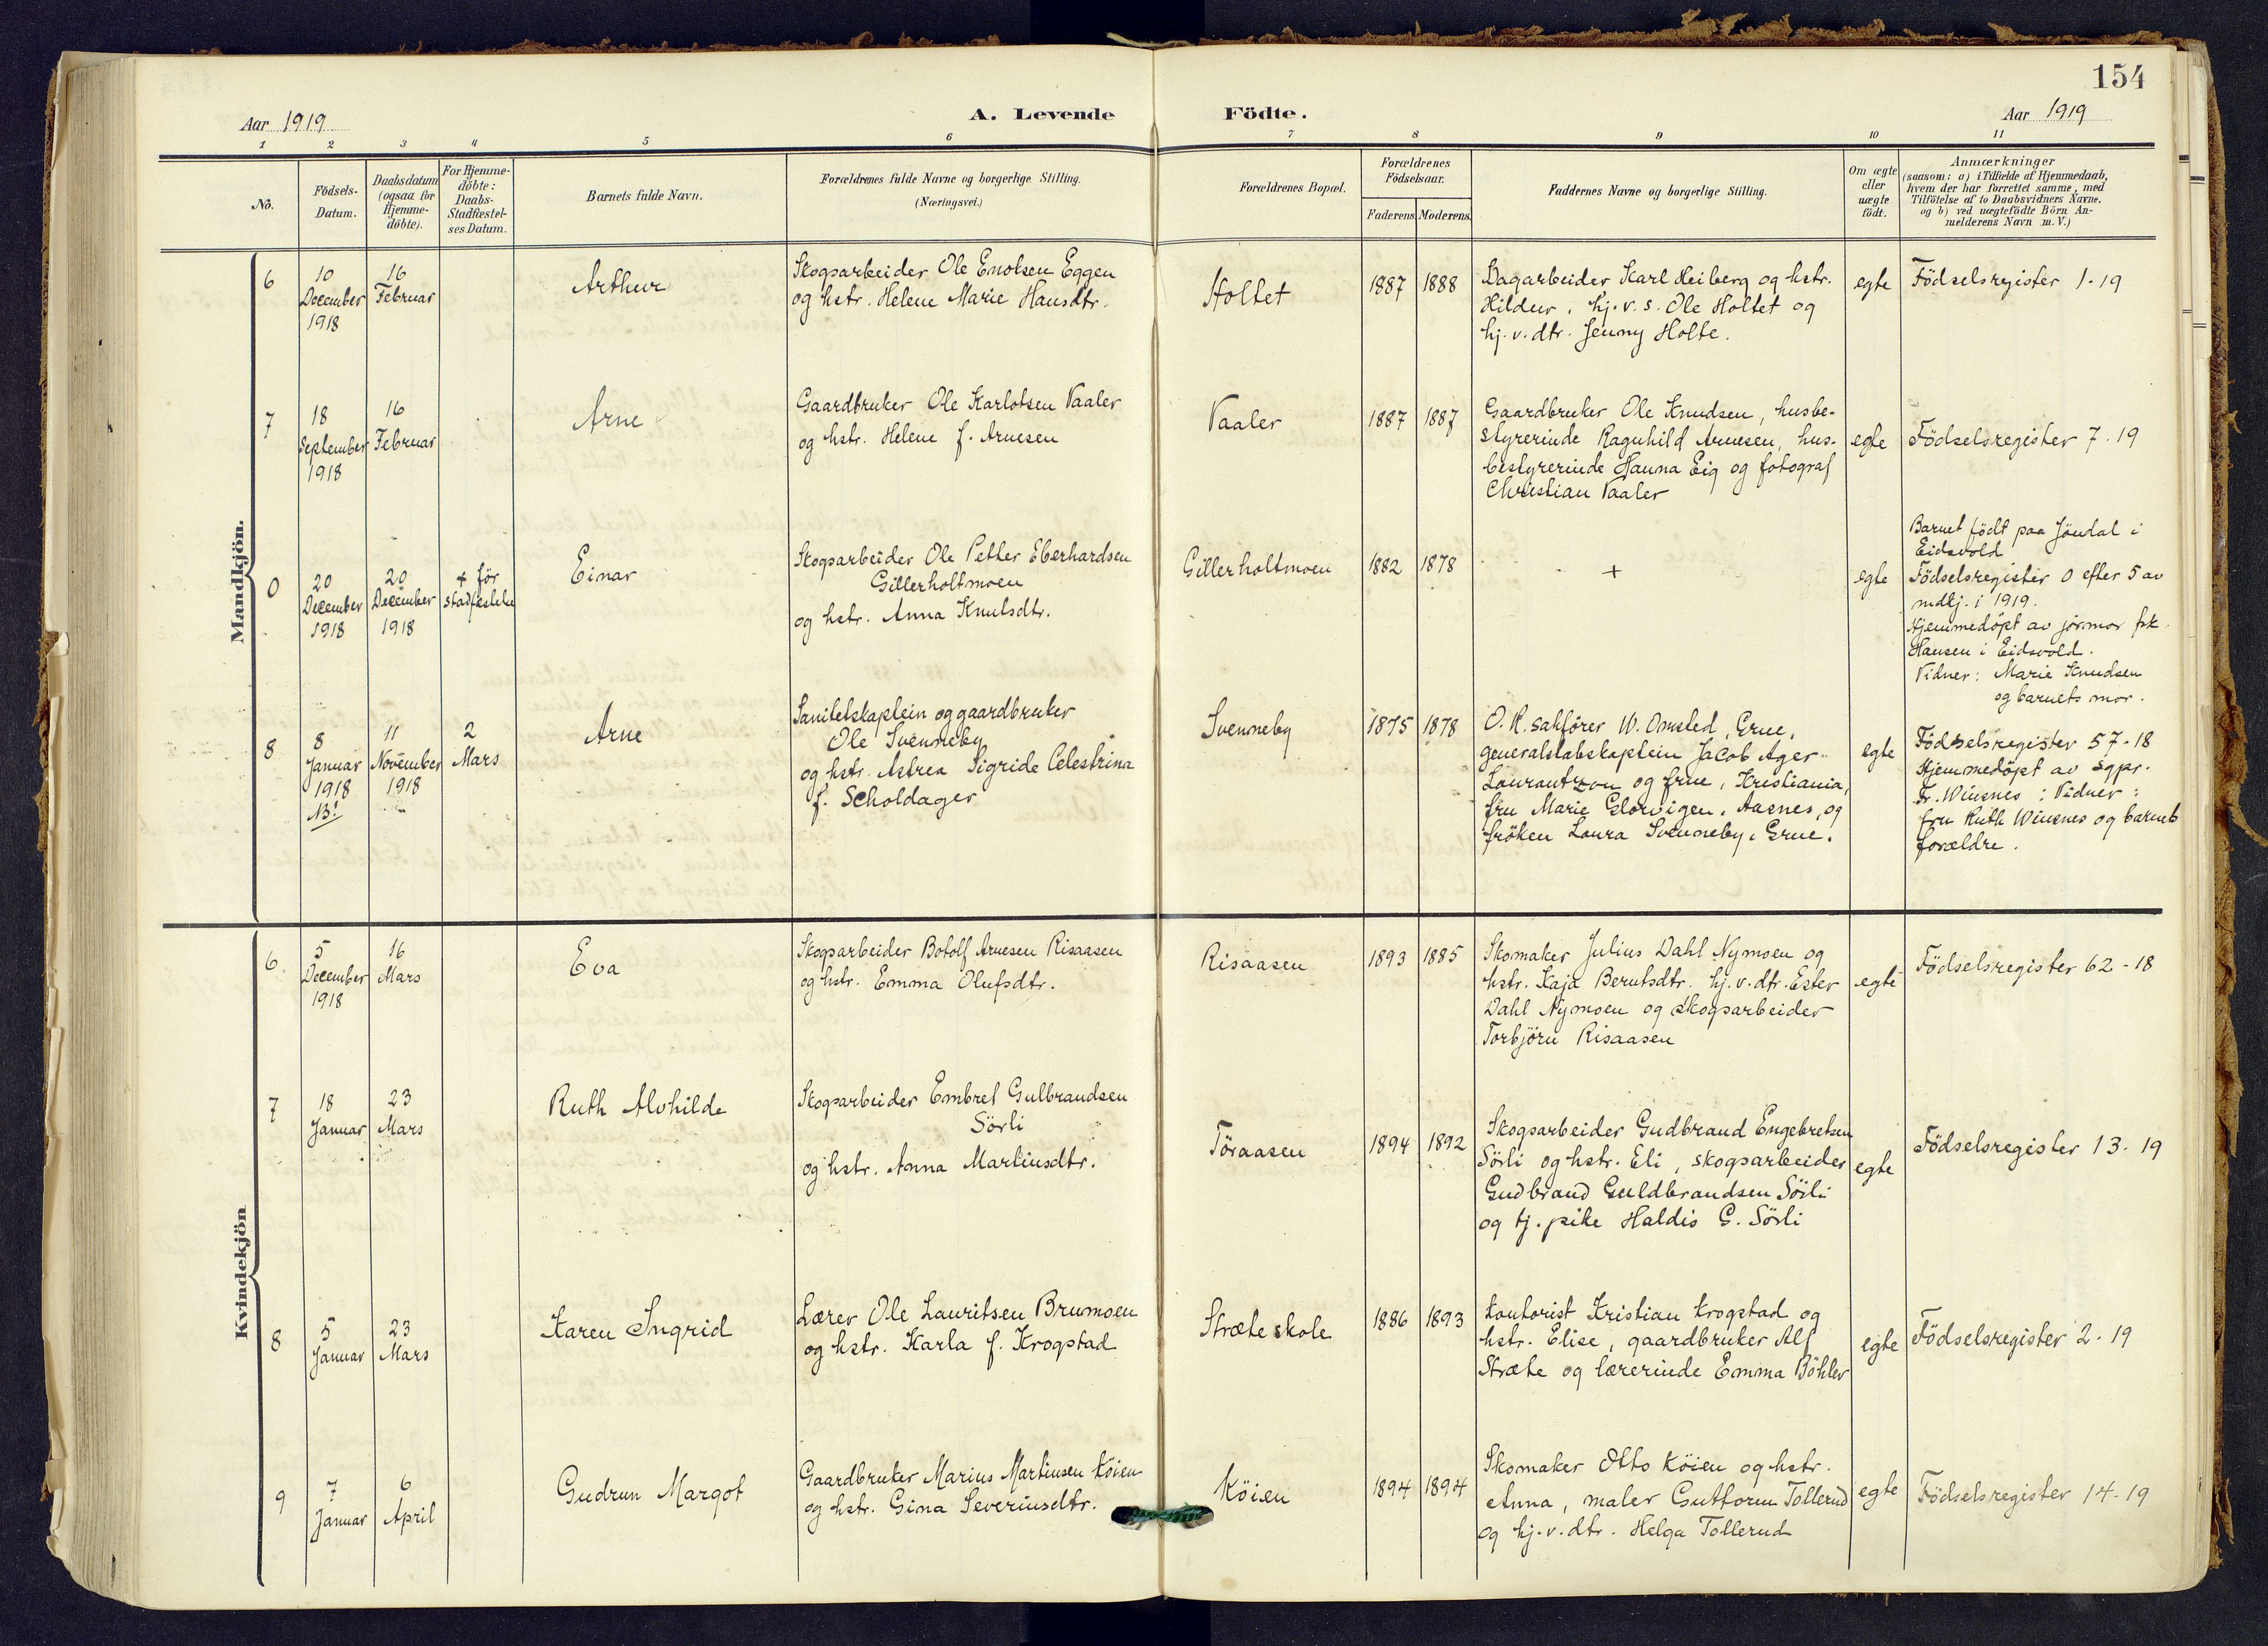 154
Aar 1919
A. Levende
Födte.
Aar 1919
1 2 3 4 5 6 7 8 9 10 11
No.
Födsels-
Datum.
Daabsdatum
(ogsaa for
Hjemme-
döbte).
For Hjemme-
döbte:
Daabs-
Stadfæstel-
ses Datum.
Barnets fulde Navn.
Forældrenes fulde Navne og borgerlige Stilling.
(Næringsvei.)
Forældrenes Bopæl.
Forældrenes
Födselsaar.
Faderens. Moderens.
Faddernes Navne og borgerlige Stilling.
Om ægte
eller
uægte
födt.
Anmærkninger
(saasom: a) i Tilfælde af Hjemmedaab,
hvem der har forrettet samme, med
Tilföielse af to Daabsvidners Navne,
og b) ved uægtefödte Börn An-
melderens Navn m. V.)
Mandkjön.
6
10
December
1918
16
Februar
Arthur
Skogsarbeider Ole Enotsen Eggen
og hstr. Helene Marie Hansdtr.
Holtet
1887
1888
Dagarbeider Karl Heiberg og hstr.
Hildur, hj. v. s. Ole Holtet og
hj. v. dtr. Jenny Holte.
egte
Födselsregister 1-19
7
18
September
1918
16
Februar
Arne
Gaardbruker Ole Karlotsen Vaaler
og hstr. Helene f. Arnesen
Vaaler
1887
1887
Gaardbruker Ole Knudsen, husbe-
styrerinde Ragnhild Arnesen, hus-
bestyrerinde Hanna Eig og fotograf
Christian Vaaler
egte
Födselsregister 7-19
0
20
December
1918
20
December
1918
+ för
stadfæstelse
Einar
Skogsarbeider Ole Petter Eberhardsen
Gillerholtmoen
og hstr. Anna Knutsdtr.
Gillerholtmoen
1882
1878
+
egte
Barnet födt paa Jöndal i
Eidsvold
Födselsregister 0 efter 5 av
mdkj. i 1919.
Hjemmedöpt av jormor frk.
Hansen i Eidsvold.
Vidner: Marie Knudsen
og barnets mor.
8
8
Januar
1918
NB!
11
November
1918
2
Mars
Arne
Sanitetskaptein og gaardbruker
Ole Svenneby
og hstr. Astrea Sigride Celestrina
f. Scholdager
Svenneby
1875
1878
O. R. sakförer W. Omsted, Grue,
generalstabskaptein Jacob Ager
Laurantzon og frue, Kristiania,
fru Marie Glorvigen, Aasnes, og
fröken Laura Svenneby, Grue.
egte
Födselsregister 57-18
Hjemmedöpt av sgpr.
Fr. Winsnes; Vidner:
fru Ruth Winsnes og barnets
forældre.
Kvindekjön
6
5
December
1918
16
Mars
Eva
Skogsarbeider Botolf Arnesen Risaasen
og hstr. Emma Olufsdtr.
Risaasen
1893
1885
Skomaker Julius Dahl Nymoen og
hstr. Kaja Berntsdtr. hj. v. dtr. Ester
Dahl Nymoen og skogsarbeider
Torbjörn Risaasen
egte
Födselsregister 62-18
7
18
Januar
23
Mars
Ruth Alvhilde
Skogsarbeider Embret Gulbrandsen
Sörli
og hstr. Anna Martinsdtr.
Töraasen
1894
1892
Skogsarbeider Gudbrand Engebretsen
Sörli og hstr. Eli, skogsarbeider
Gudbrand Guldbrandsen Sörli
og tj. pike Haldis G. Sörli
egte
Födselsregister 13-19
8
5
Januar
23
Mars
Karen Ingrid
Lærer Ole Lauritsen Brumoen
og hstr. Karla f. Krogstad
Stræte skole
1886
1893
Kontorist Kristian Krogstad og
hstr. Elise, gaardbruker Alf
Stræte og lærerinde Emma Böhler
egte
Födselsregister 2-19
9
7
Januar
6
April
Gudrun Margot
Gaardbruker Marius Martinsen Köien
og hstr. Gina Severinsdtr.
Köien
1894
1894
Skomaker Otto Köien og hstr.
Anna, maler Guttorm Tollerud
og hj. v. dtr. Helga Tollerud
egte
Födselsregister 14-19